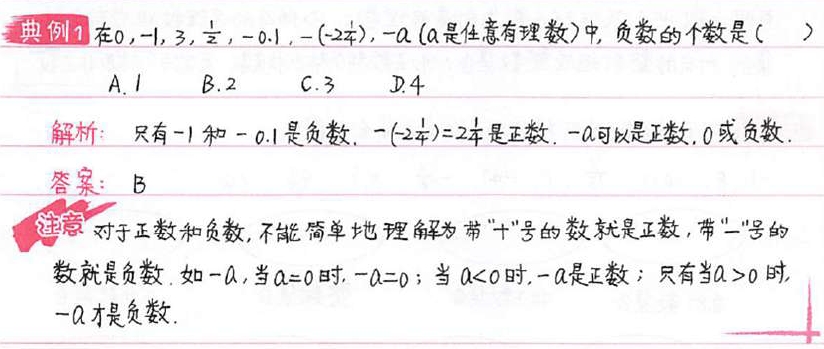 典例1 在0,-1,3,½,-0.1,-(-2¼),-a(a是任意有理数)中,负数的个数是( )
A.1 B.2 C.3 D.4
解析: 只有-1和-0.1是负数.-(-2¼)=2¼是正数.-a可以是正数,0或负数.
答案: B
注意 对于正数和负数,不能简单地理解为带"+"号的数就是正数,带"-"号的
数就是负数.如-a,当a=0时,-a=0;当a<0时,-a是正数;只有当a>0时,
-a才是负数.